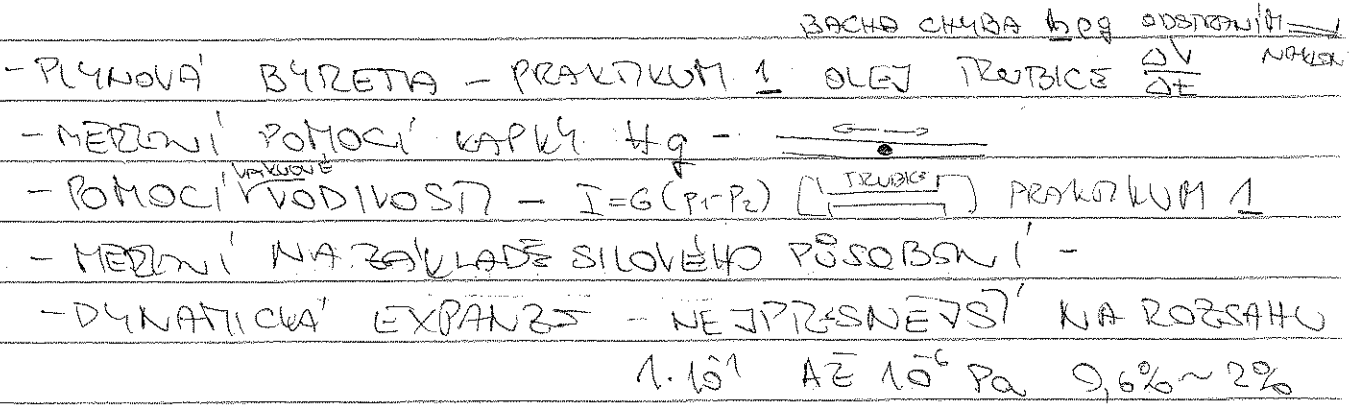 BACHA CHYBA hρg ODSTRANÍM
NÁKLON
- PLYNOVÁ BYRETA - PRAKTIKUM 1 OLEJ TRUBICE ΔV/Δt
- MĚŘENÍ POMOCÍ KAPKY Hg -
- POMOCÍ VAKUOVÉ VODIVOSTI - I=G(p1-p2) [TRUBICE] PRAKTIKUM 1
- MĚŘENÍ NA ZÁKLADĚ SILOVÉHO PŮSOBENÍ -
- DYNAMICKÁ EXPANZE - NEJPŘESNĚJŠÍ NA ROZSAHU
1·10^-1 AŽ 10^-6 Pa 0,6% ~ 2%